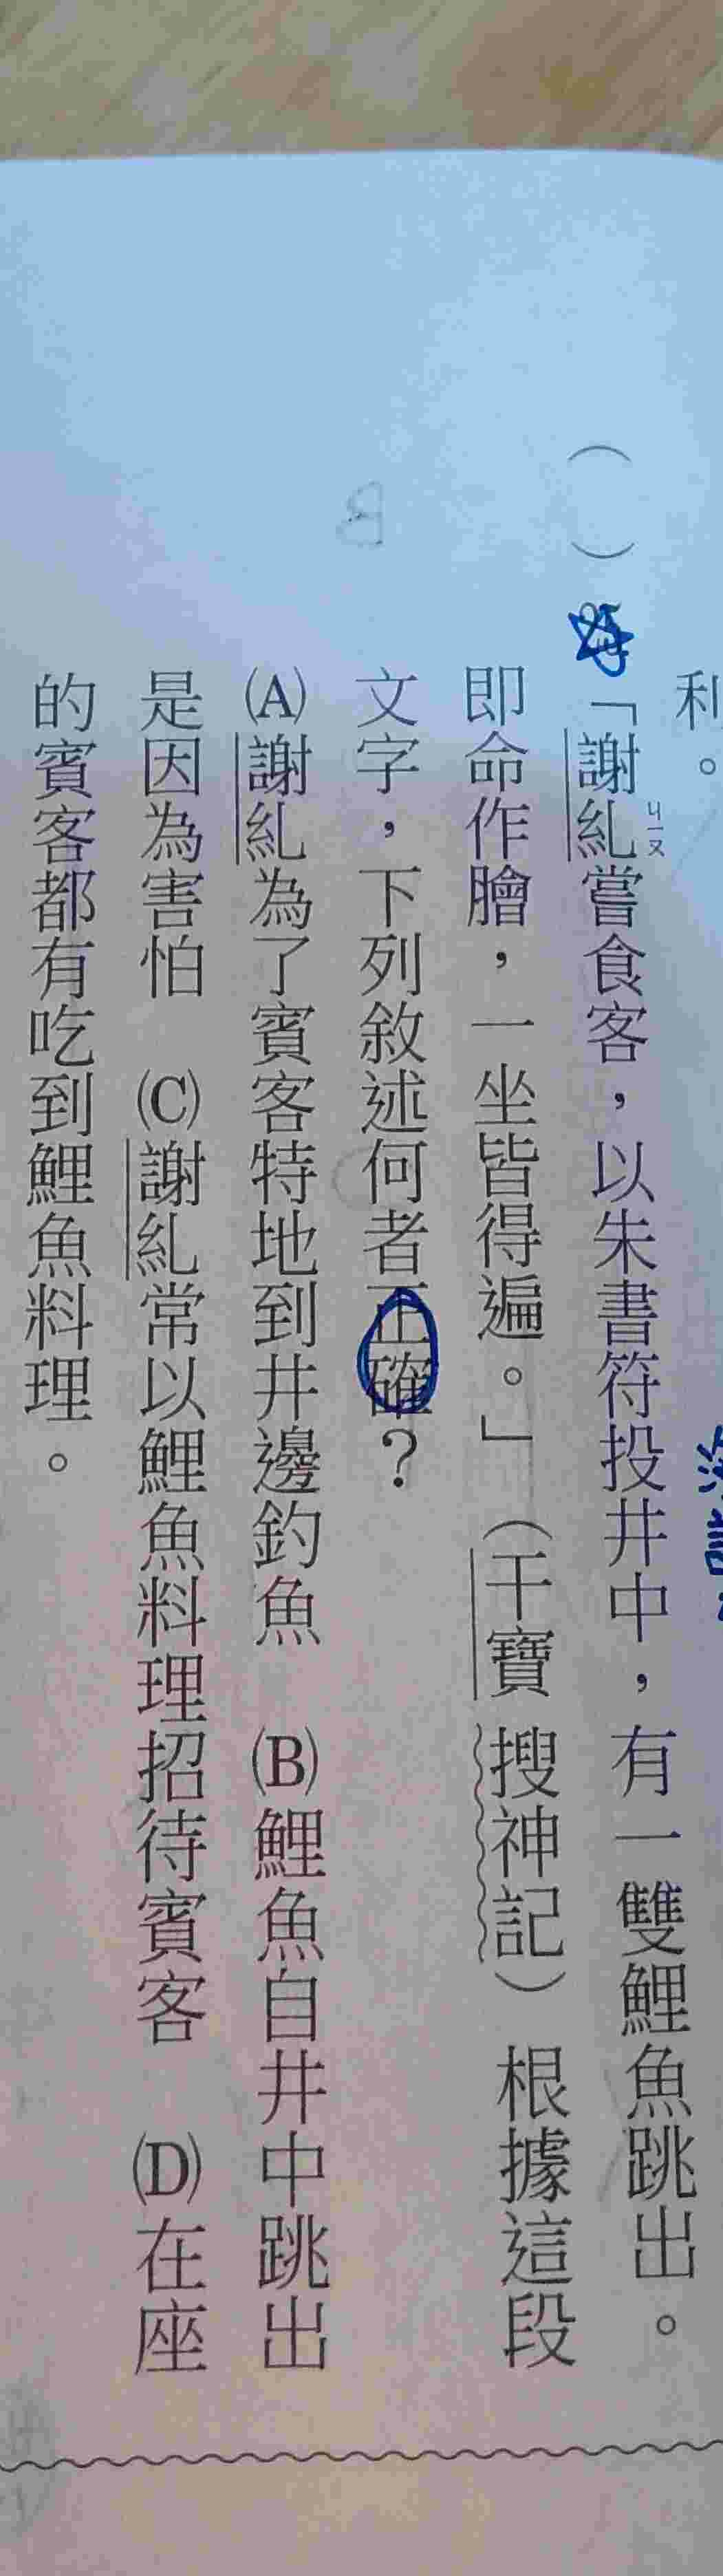 利。
（　）「謝糺ㄐㄧㄡ嘗食客，以朱書符投井中，有一雙鯉魚跳出。
即命作膾，一坐皆得遍。」（干寶搜神記）根據這段
文字，下列敘述何者正確？
(A)謝糺為了賓客特地到井邊釣魚　(B)鯉魚自井中跳出
是因為害怕　(C)謝糺常以鯉魚料理招待賓客　(D)在座
的賓客都有吃到鯉魚料理。